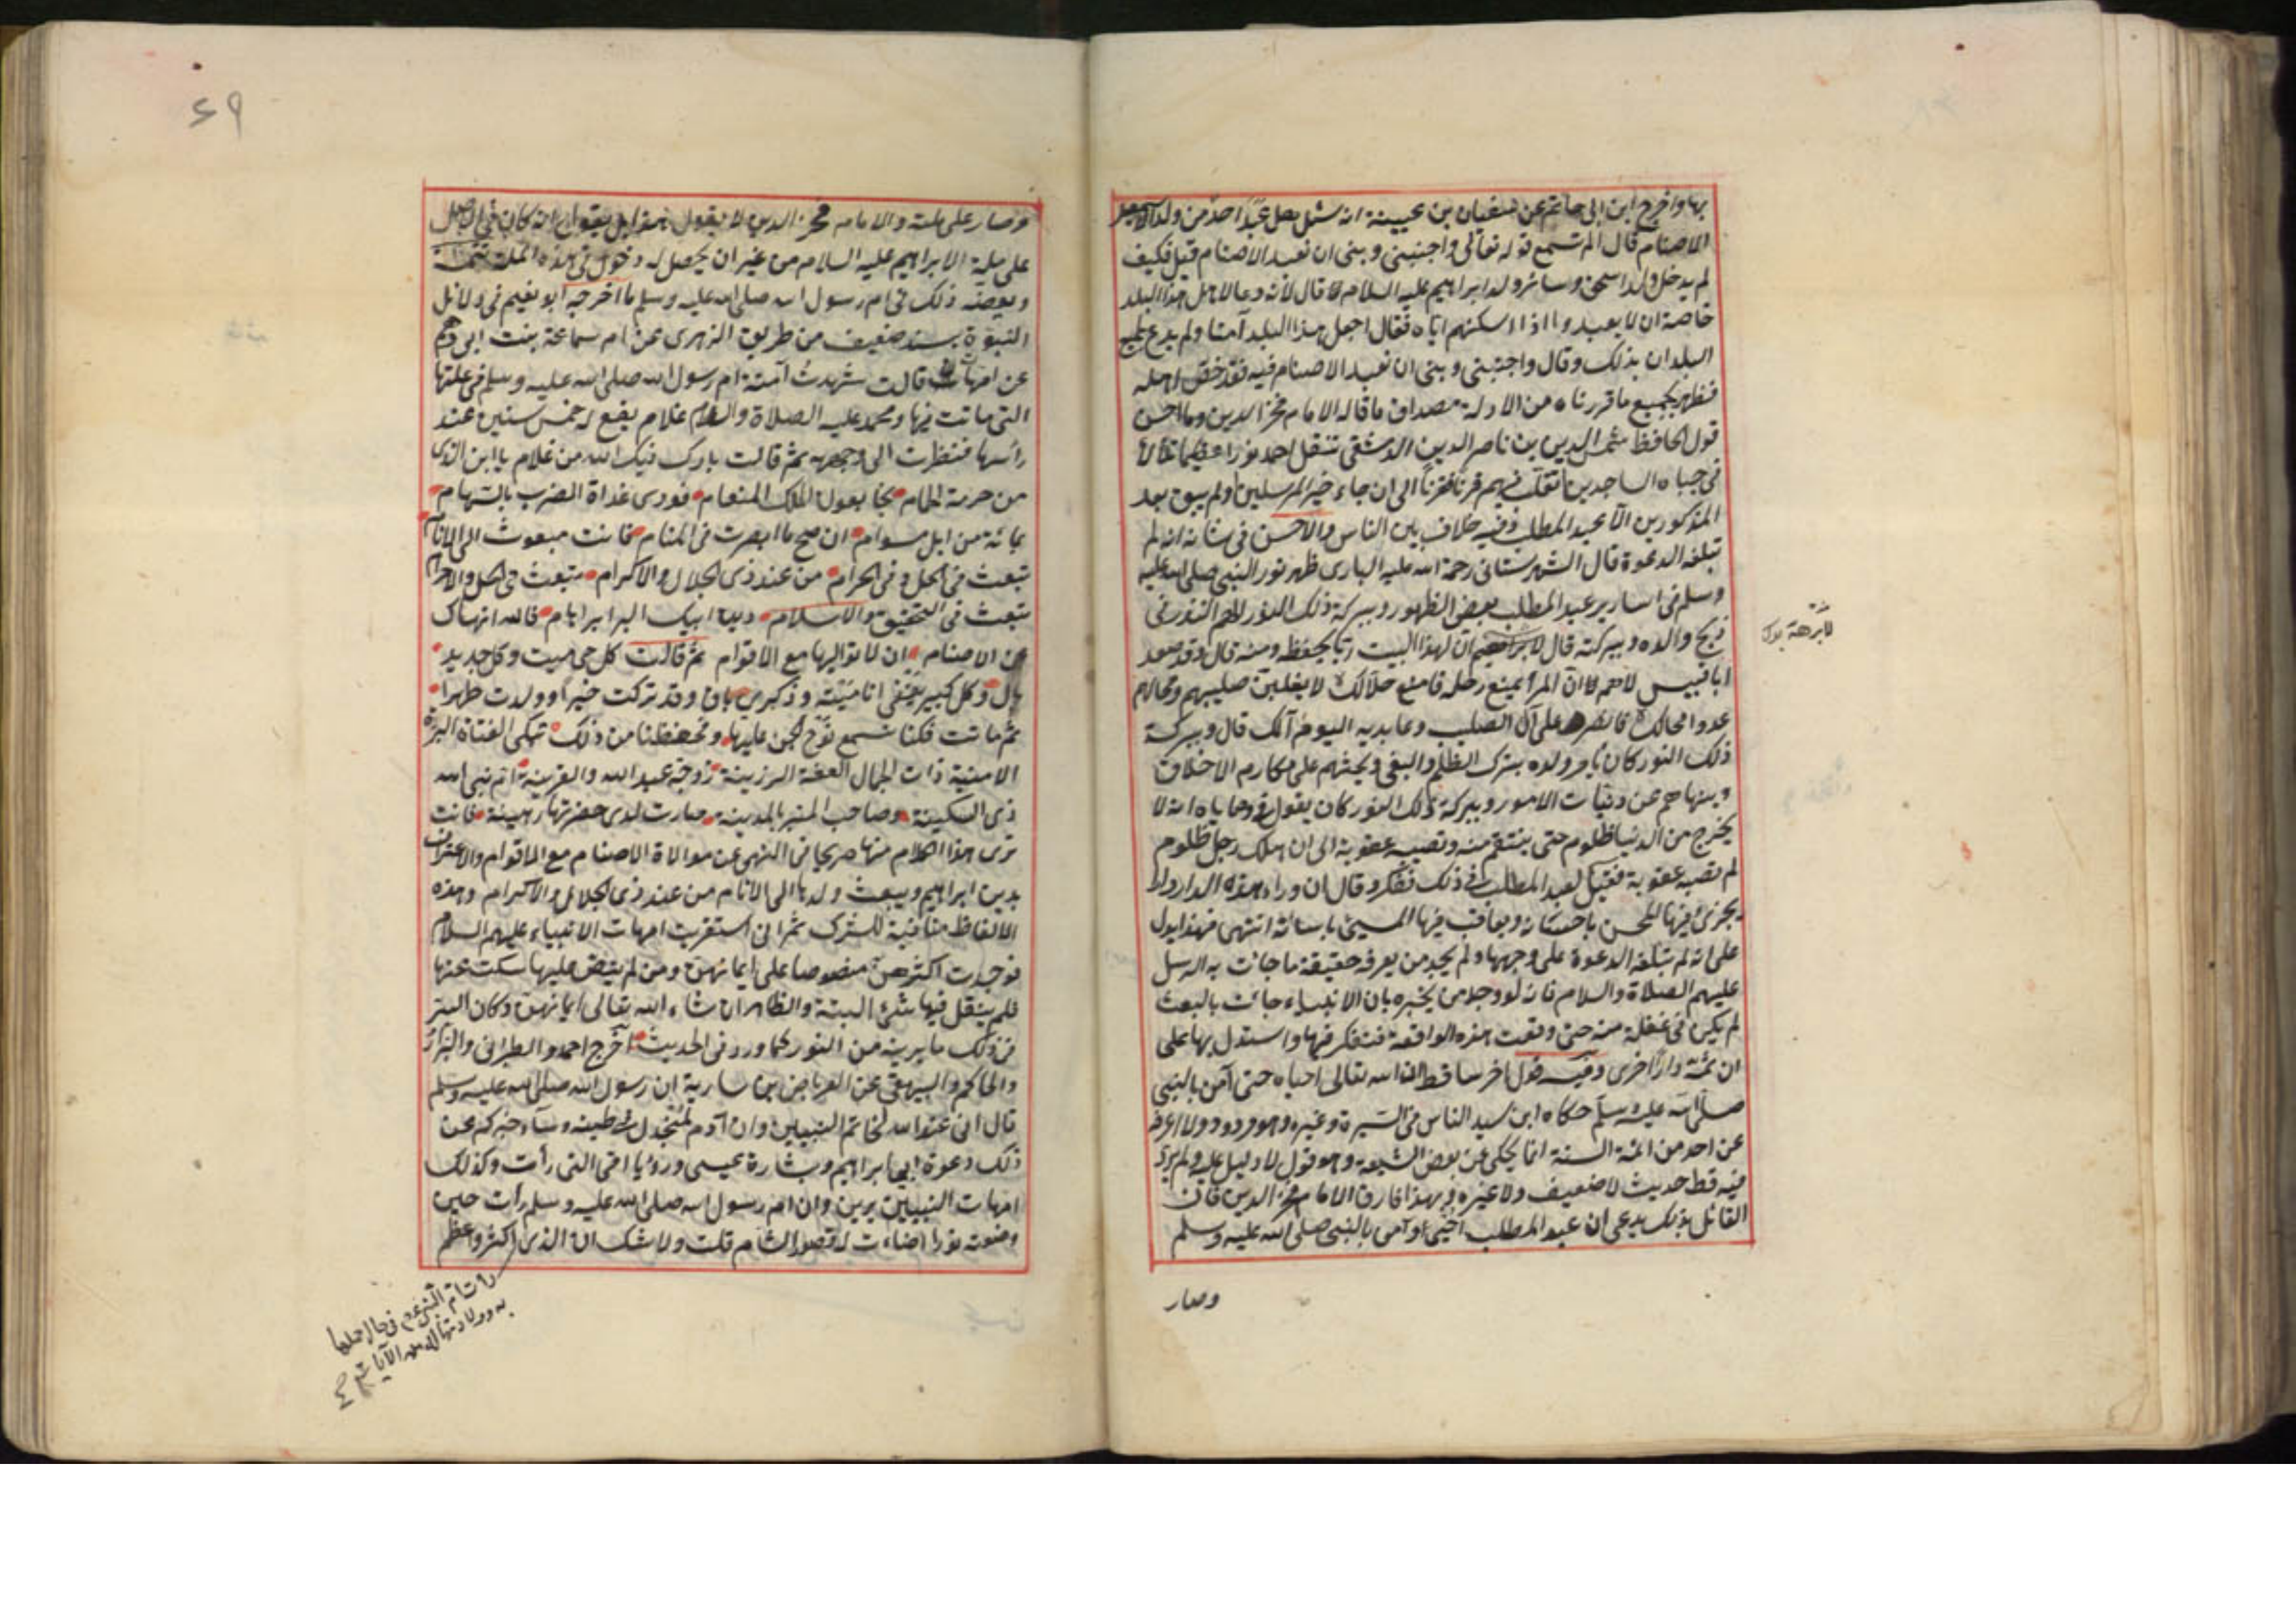 بها واخرج ابن ابى حاتم عن سفيان بن عيينة انه سئل هل عبد احد من ولد اسمعيل
الاصنام قال الم تسمع قوله تعالى واجنبنى وبنى ان نعبد الاصنام قيل فكيف
لم يدخل ولد اسحق وسائر ولد ابراهيم عليه السلام قال لانه دعا لاهل هذا البلد
خاصة ان لا يعبدوا اذا اسكنهم اياه فقال اجعل هذا البلد آمنا ولم يدع لجميع
البلدان بذلك وقال واجنبنى وبنى ان نعبد الاصنام فيه فقد خص اهله
فظهر بجميع ما قررناه من الادلة مصداق ما قاله الامام فخر الدين وما احسن
قول الحافظ شمس الدين بن ناصر الدين الدمشقى تنقل احمد نورا عظيما تلألأ
فى جباه الساجدين تقلب فيهم قرنا فقرنا الى ان جاء خير المرسلين ولم يبق بعد
المذكورين الا عبد المطلب وفيه خلاف بين الناس والاحسن فى شانه انه لم
تبلغه الدعوة قال الشهرستانى رحمة الله عليه البارى ظهر نور النبى صلى الله عليه
وسلم فى اسارير عبد المطلب بعض الظهور وببركة ذلك النور الهم النذر فى
ذبح والده وببركته قال لابراهيم ان لهذا البيت ربا يحفظه ومنه قال وقد صعد
ابا قبيس لاهم ان المرأ يمنع رحله فامنع حلالك لا يغلبن صليبهم ومحالهم
عدوا محالك فانصر على آل الصليب وعابديه اليوم آلك قال وببركة
ذلك النور كان يأمر ولده بترك الظلم والبغى ويحثهم على مكارم الاخلاق
وينهاهم عن دنيات الامور وببركة ذلك النور كان يقول فى وصاياه انه لا
يخرج من الدنيا ظلوم حتى ينتقم منه وتصيبه عقوبة الى ان هلك رجل ظلوم
لم تصبه عقوبة فقيل لعبد المطلب فى ذلك ففكر وقال ان وراء هذه الدار دارا
يجزى فيها المحسن باحسانه ويعاقب فيها المسئ باسائته انتهى فهذا يدل
على انه لم تبلغه الدعوة على وجهها ولم يجد من يعرفه حقيقة ما جائت به الرسل
عليهم الصلاة والسلام فانه لو وجد من يخبره بان الانبياء جائت بالبعث
لم يكن فى غفلة منه حتى وقعت هذه الواقعة فتفكر فيها واستدل بها على
ان ثمة دارا اخرى وفيه قول اخر ساقط ان الله تعالى احياه حتى آمن بالنبى
صلى الله عليه وسلم حكاه ابن سيد الناس فى السيرة وغيره وهو مردود ولا اعرفه
عن احد من ائمة السنة انما يحكى عن بعض الشيعة وهو قول لا دليل عليه ولم يرد
فيه قط حديث لا ضعيف ولا غيره وبهذا فارق الامام فخر الدين فان
القائل بذلك يدعى ان عبد المطلب احيى وآمن بالنبى صلى الله عليه وسلم
وصار
٤٩
وصار على ملته والامام فخر الدين لا يقول هذا بل يقول انه كان فى الاصل
على ملة الابراهيم عليه السلام من غير ان يحصل له دخول فى هذه الملة تتمة
وبعضه ذلك فى ام رسول الله صلى الله عليه وسلم ما اخرجه ابو نعيم فى دلائل
النبوة بسند ضعيف من طريق الزهرى عن ام سماعة بنت ابى رهم
عن امها قالت شهدت آمنة ام رسول الله صلى الله عليه وسلم فى علتها
التى ماتت فيها ومحمد عليه الصلاة والسلام غلام يفع له خمس سنين عند
رأسها فنظرت الى وجهه ثم قالت بارك فيك الله من غلام يا ابن الذى
من حرمة الحمام نجا بعون الملك المنعام فودى غداة الضرب بالسهام
بمائة من ابل سوام ان صح ما ابصرت فى المنام فانت مبعوث الى الانام
تبعث فى الحل وفى الحرام من عند ذى الجلال والاكرام تبعث فى الحل والاحرام
تبعث فى التحقيق والاسلام دين ابيك البر ابراهام فالله انهاك
عن الاصنام ان لا تواليها مع الاقوام ثم قالت كل حى ميت وكل جديد
بال وكل كبير يفنى انا ميتة وذكرى باق وقد تركت خيرا وولدت طهرا
ثم ماتت فكنا نسمع نوح الجن عليها وفحفظنا من ذلك تبكى الفتاة البرة
الامينة ذات الجمال العفة الرزينة زوجة عبد الله والقرينة ام نبى الله
ذى السكينة وصاحب المنبر بالمدينة صارت لدى حفرتها رهينة فانت
ترى هذا الكلام منها صريحا فى النهى عن موالاة الاصنام مع الاقوام والاعتراف
بدين ابراهيم وببعث ولدها الى الانام من عند ذى الجلال والاكرام وهذه
الالفاظ منافية للشرك ثم انى استقريت امهات الانبياء عليهم السلام
فوجدت اكثرهن منصوصا على ايمانهن ومن لم ينص عليها سكت عنها
فلم ينقل فيها شئ البتة والظاهر ان شاء الله تعالى ايمانهن وكان السر
فى ذلك ما يرينه من النور كما ورد فى الحديث اخرج احمد والطبرانى والبزار
والحاكم والبيهقى عن العرباض بن سارية ان رسول الله صلى الله عليه وسلم
قال انى عند الله لخاتم النبيين وان آدم لمنجدل فى طينه وسأخبركم عن
ذلك دعوة ابى ابراهيم وبشارة عيسى ورؤيا امى التى رأت وكذلك
امهات النبيين يرين وان ام رسول الله صلى الله عليه وسلم رأت حين
وضعته نورا اضاءت له قصور الشام قلت ولا شك ان الذى اكثر واعظم